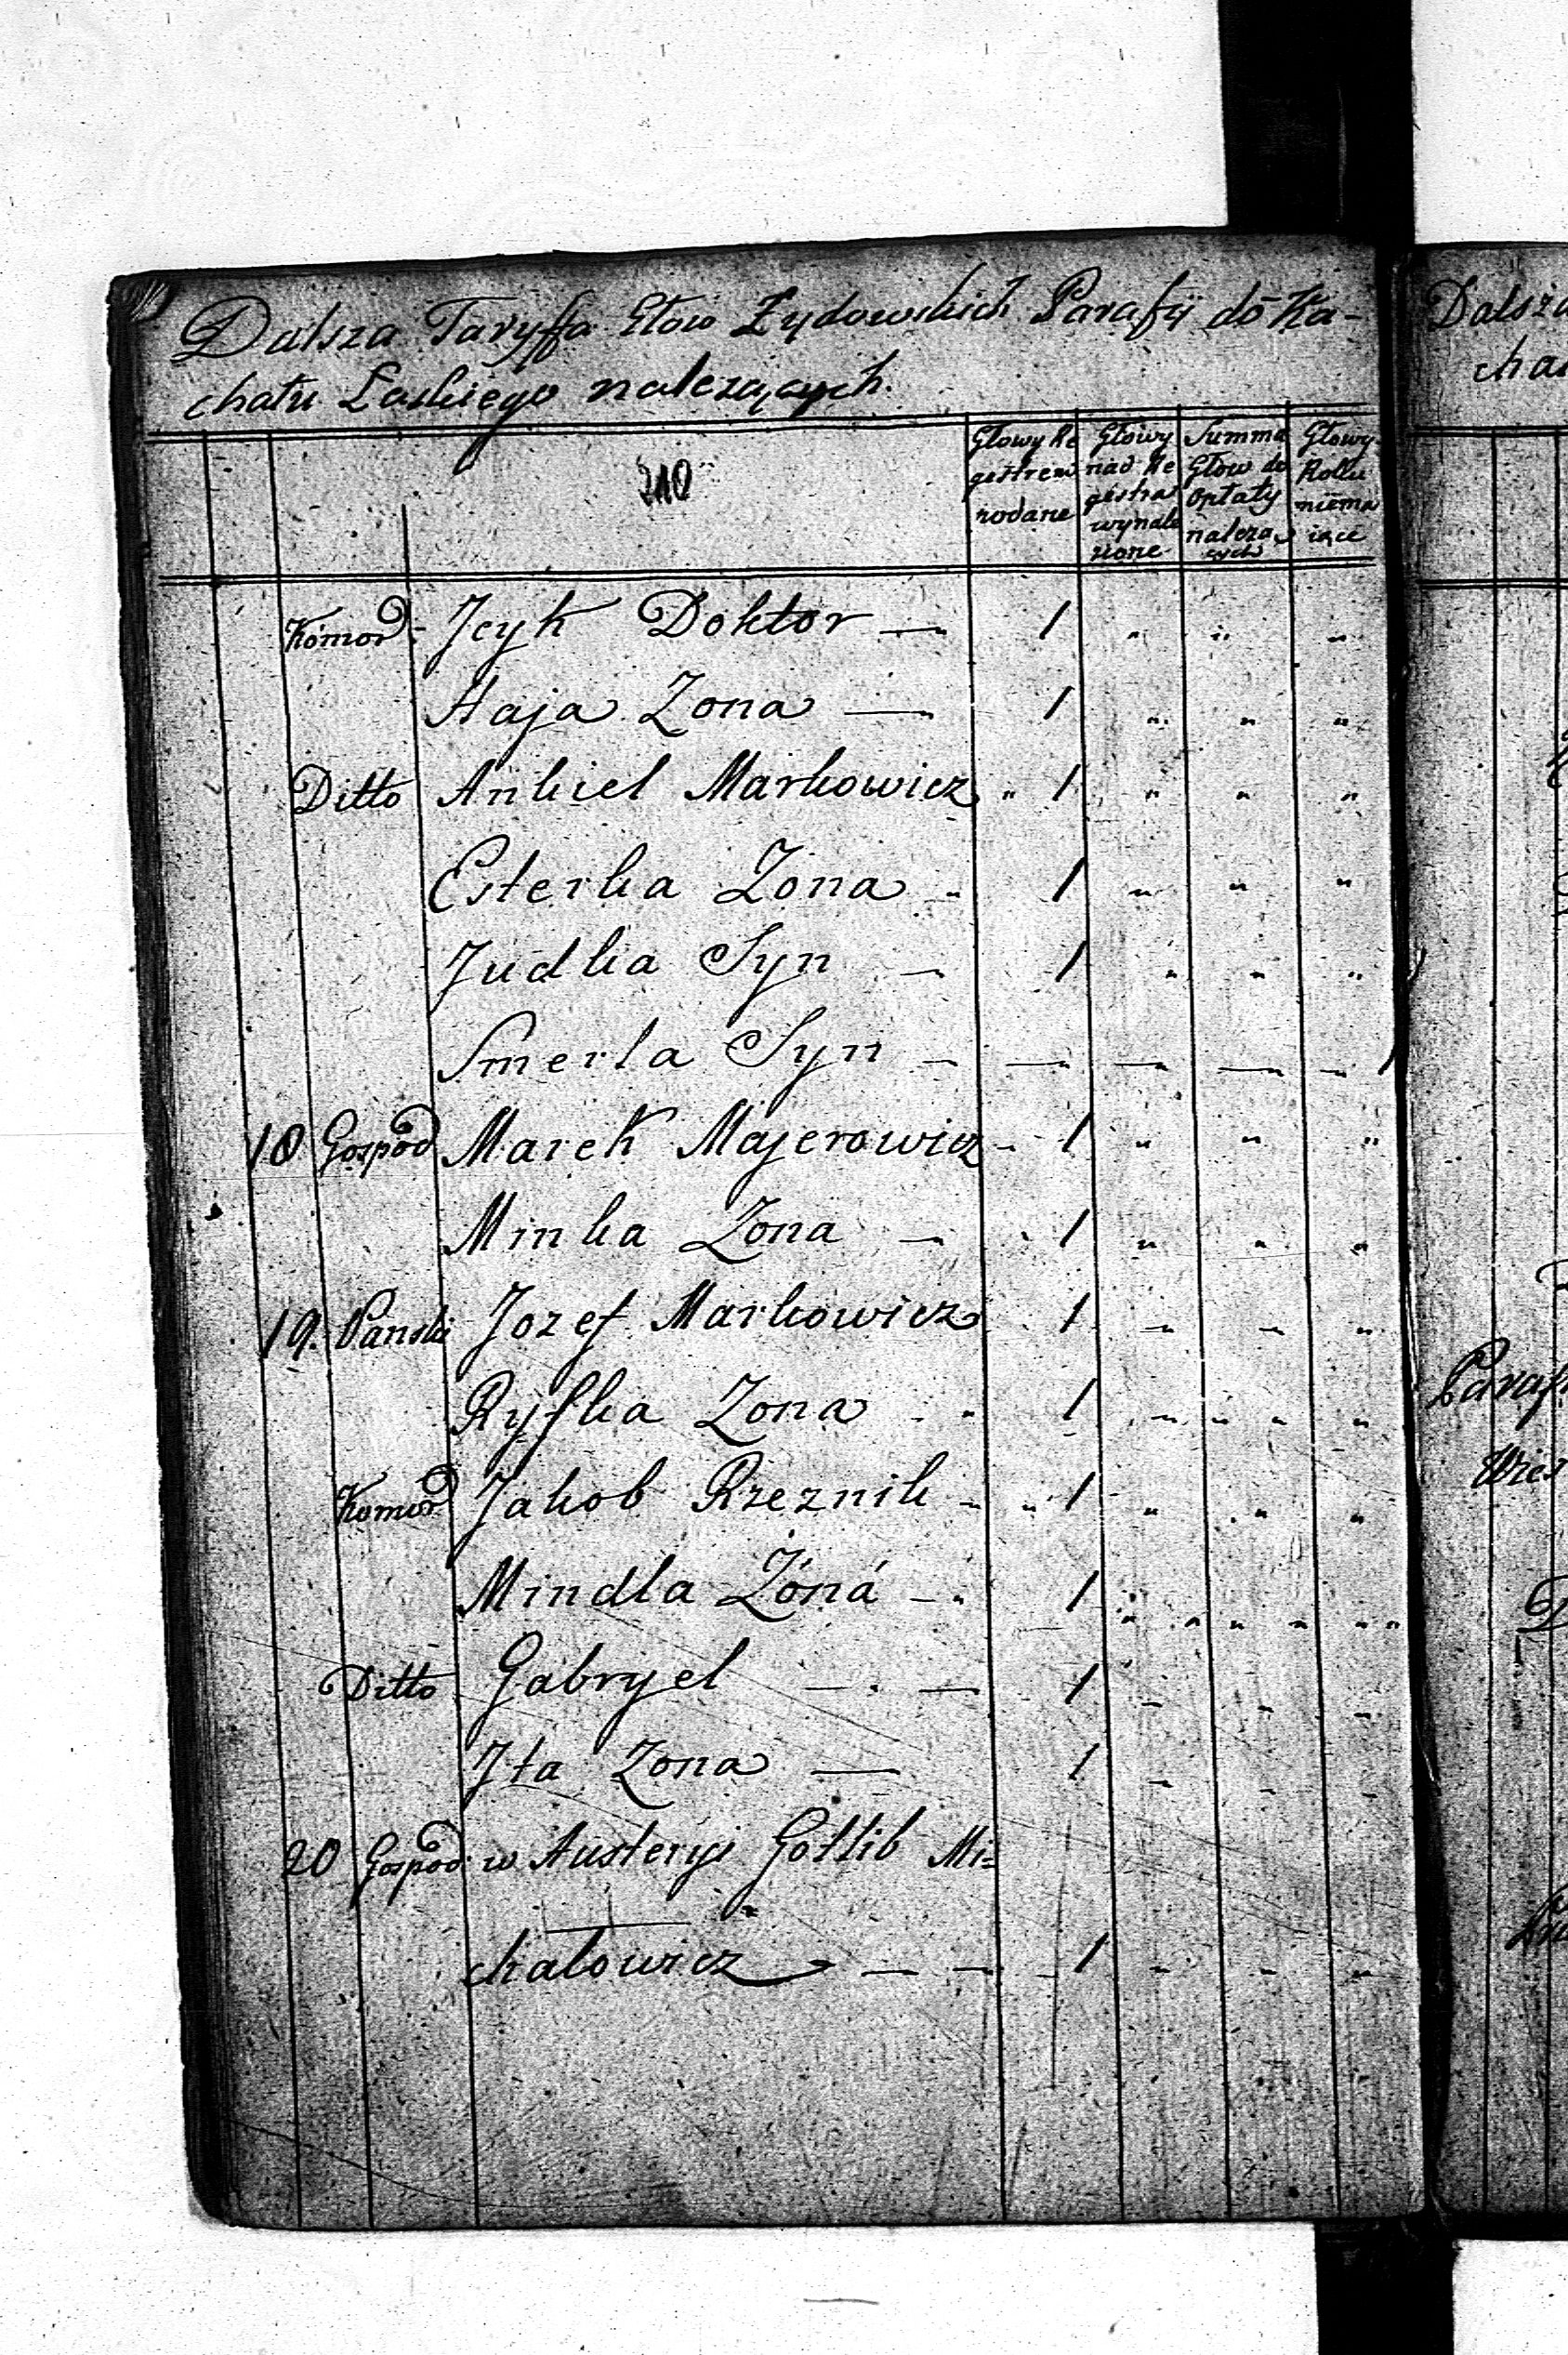 Dalsza Taryffa Głow Żydowskich Parafij do Ka-
chału Laskiego należących.
210
Głowy Re
gestrem
podane
Głowy
nad Re
gestra
wynale
zione
Summa
Głow do
Opłaty
należą
cych
Głowy
Roku
niema
iące
Komor: Jcyk Doktor — 1 " " "
Haja Zona — 1 " " "
Ditto Ankiel Markowicz " 1 " " "
Esterka Zona - 1 " " "
Judka Syn — 1 " " "
Smerla Syn — — — — — 1
18 Gospod Marek Majerowicz - 1 " " "
Minka Zona — 1 " " "
19. Panski Jozef Markowicz 1 " " "
Ryfka Zona " 1 " " "
Komor Jakob Rzeznik - " 1 " " "
Mindla Żóná — 1 " " "
Ditto Gabryel — — 1 " " "
Jta Zona — 1 " " "
20 Gospod: w Austeryi Gotlib Mi=
chałowicz — — 1 " " "
Dalsza
cha
Paraf
Wies